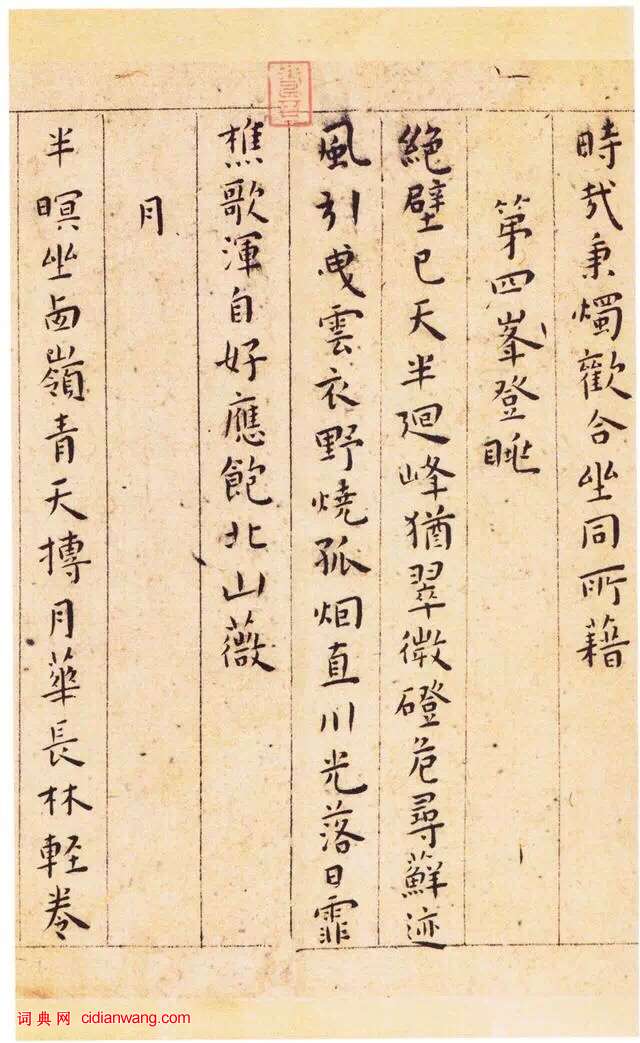 時哉秉燭歡合坐同所藉
第四峯登眺
絶壁已天半廻峰猶翠微磴危尋蘚迹
風引曵雲衣野燒孤烟直川光落日霏
樵歌渾自好應飽北山薇
月
半暝坐西嶺青天摶月華長林輕卷
词典网 cidianwang.com